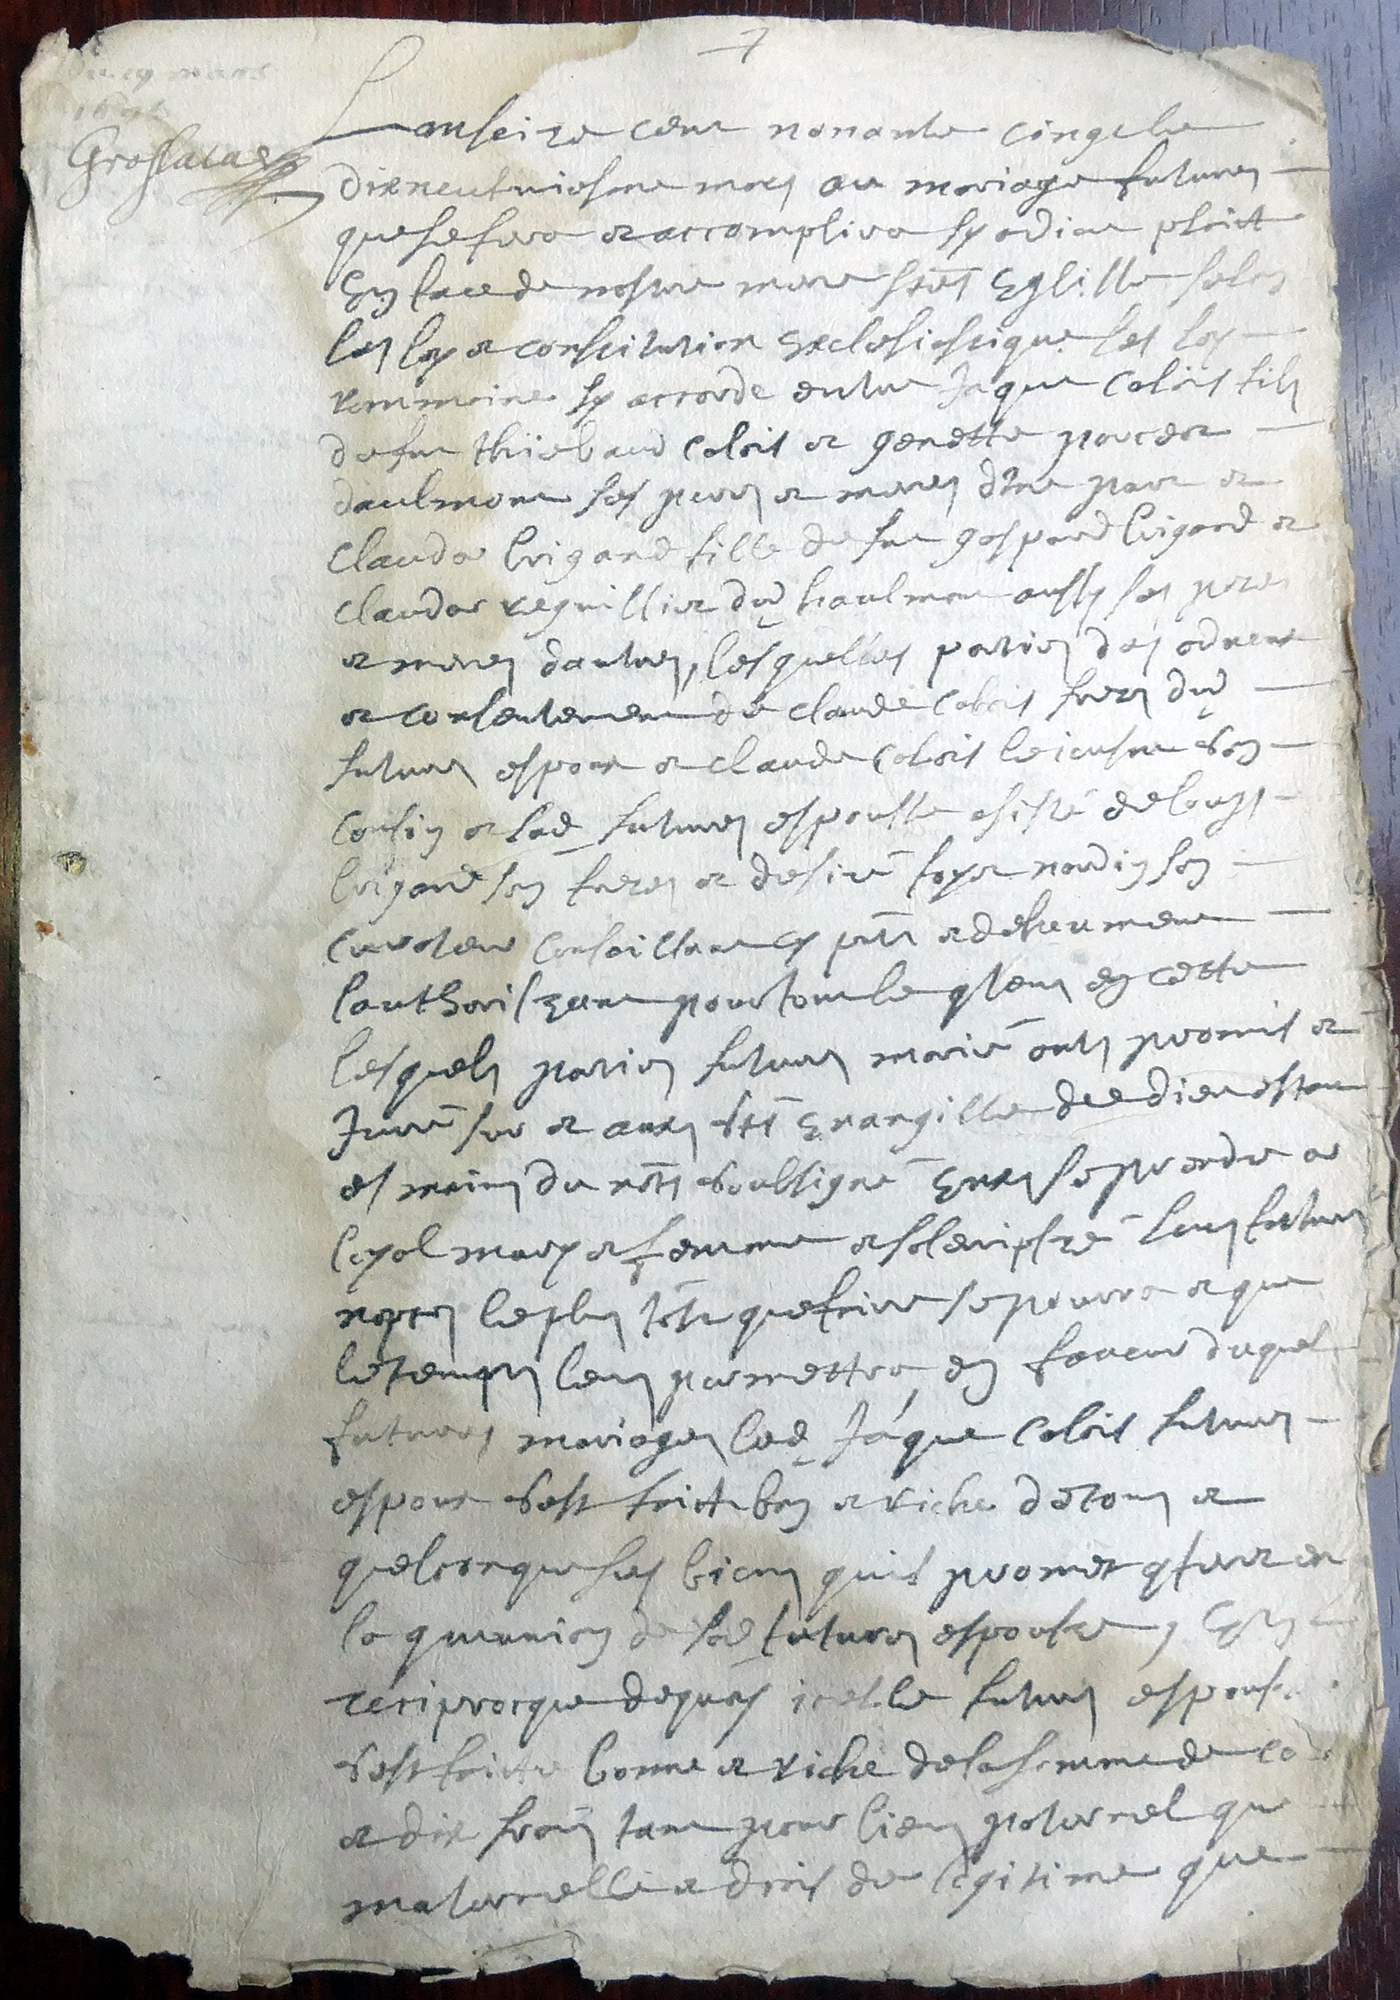 7
du 19 mars
169
Grossatae
Lan seize cens nonante cinq le
dixneufviesme mars au mariage futures
que se fera et accomplira sy a dieu plaict
En face de nostre mere ste Eglille selon
les loy et constitution Ecclesiastique les loy
rommaine sy accorde entre Jaque Colois fils
de feu thiebaud Colois et genette
daulmont ses peres et meres dune part et
Claudee brigand fille de feu gaspard brigand et
Claudee reguillier dud haulmon aussy ses peres
et meres dautres, lesquelles parties des
et consentement de claude Colois freres dud
futures espoux et claude Colois le jeusne son
Cousin et lad futures espousse asisté de louys
brigand son freres et desiré nardin son
curateur Conseillant
lauthorissant pour tout le en cette
lesquels parties futures marié ont promis et
Juré sur et aux sts Evangille de dieu estant
es mains du nore soubsigné Eux se prendre a
loyal mary et femme et solempizé leurs futures
nopces le plus tost que faire se pourra et que
le temps leurs permettra en faveur duquel
futures mariages led Jaque Colois futures
espoux sest faict bon et riche de tous et
quelconque ses biens quil promet
la de lad futures espousse,
reciprocque dequoy icelle futures espousse
sest faicte bonne et riche de la somme de
et dix frans tant pour biens paternel que
maternelle et droit de legitime que